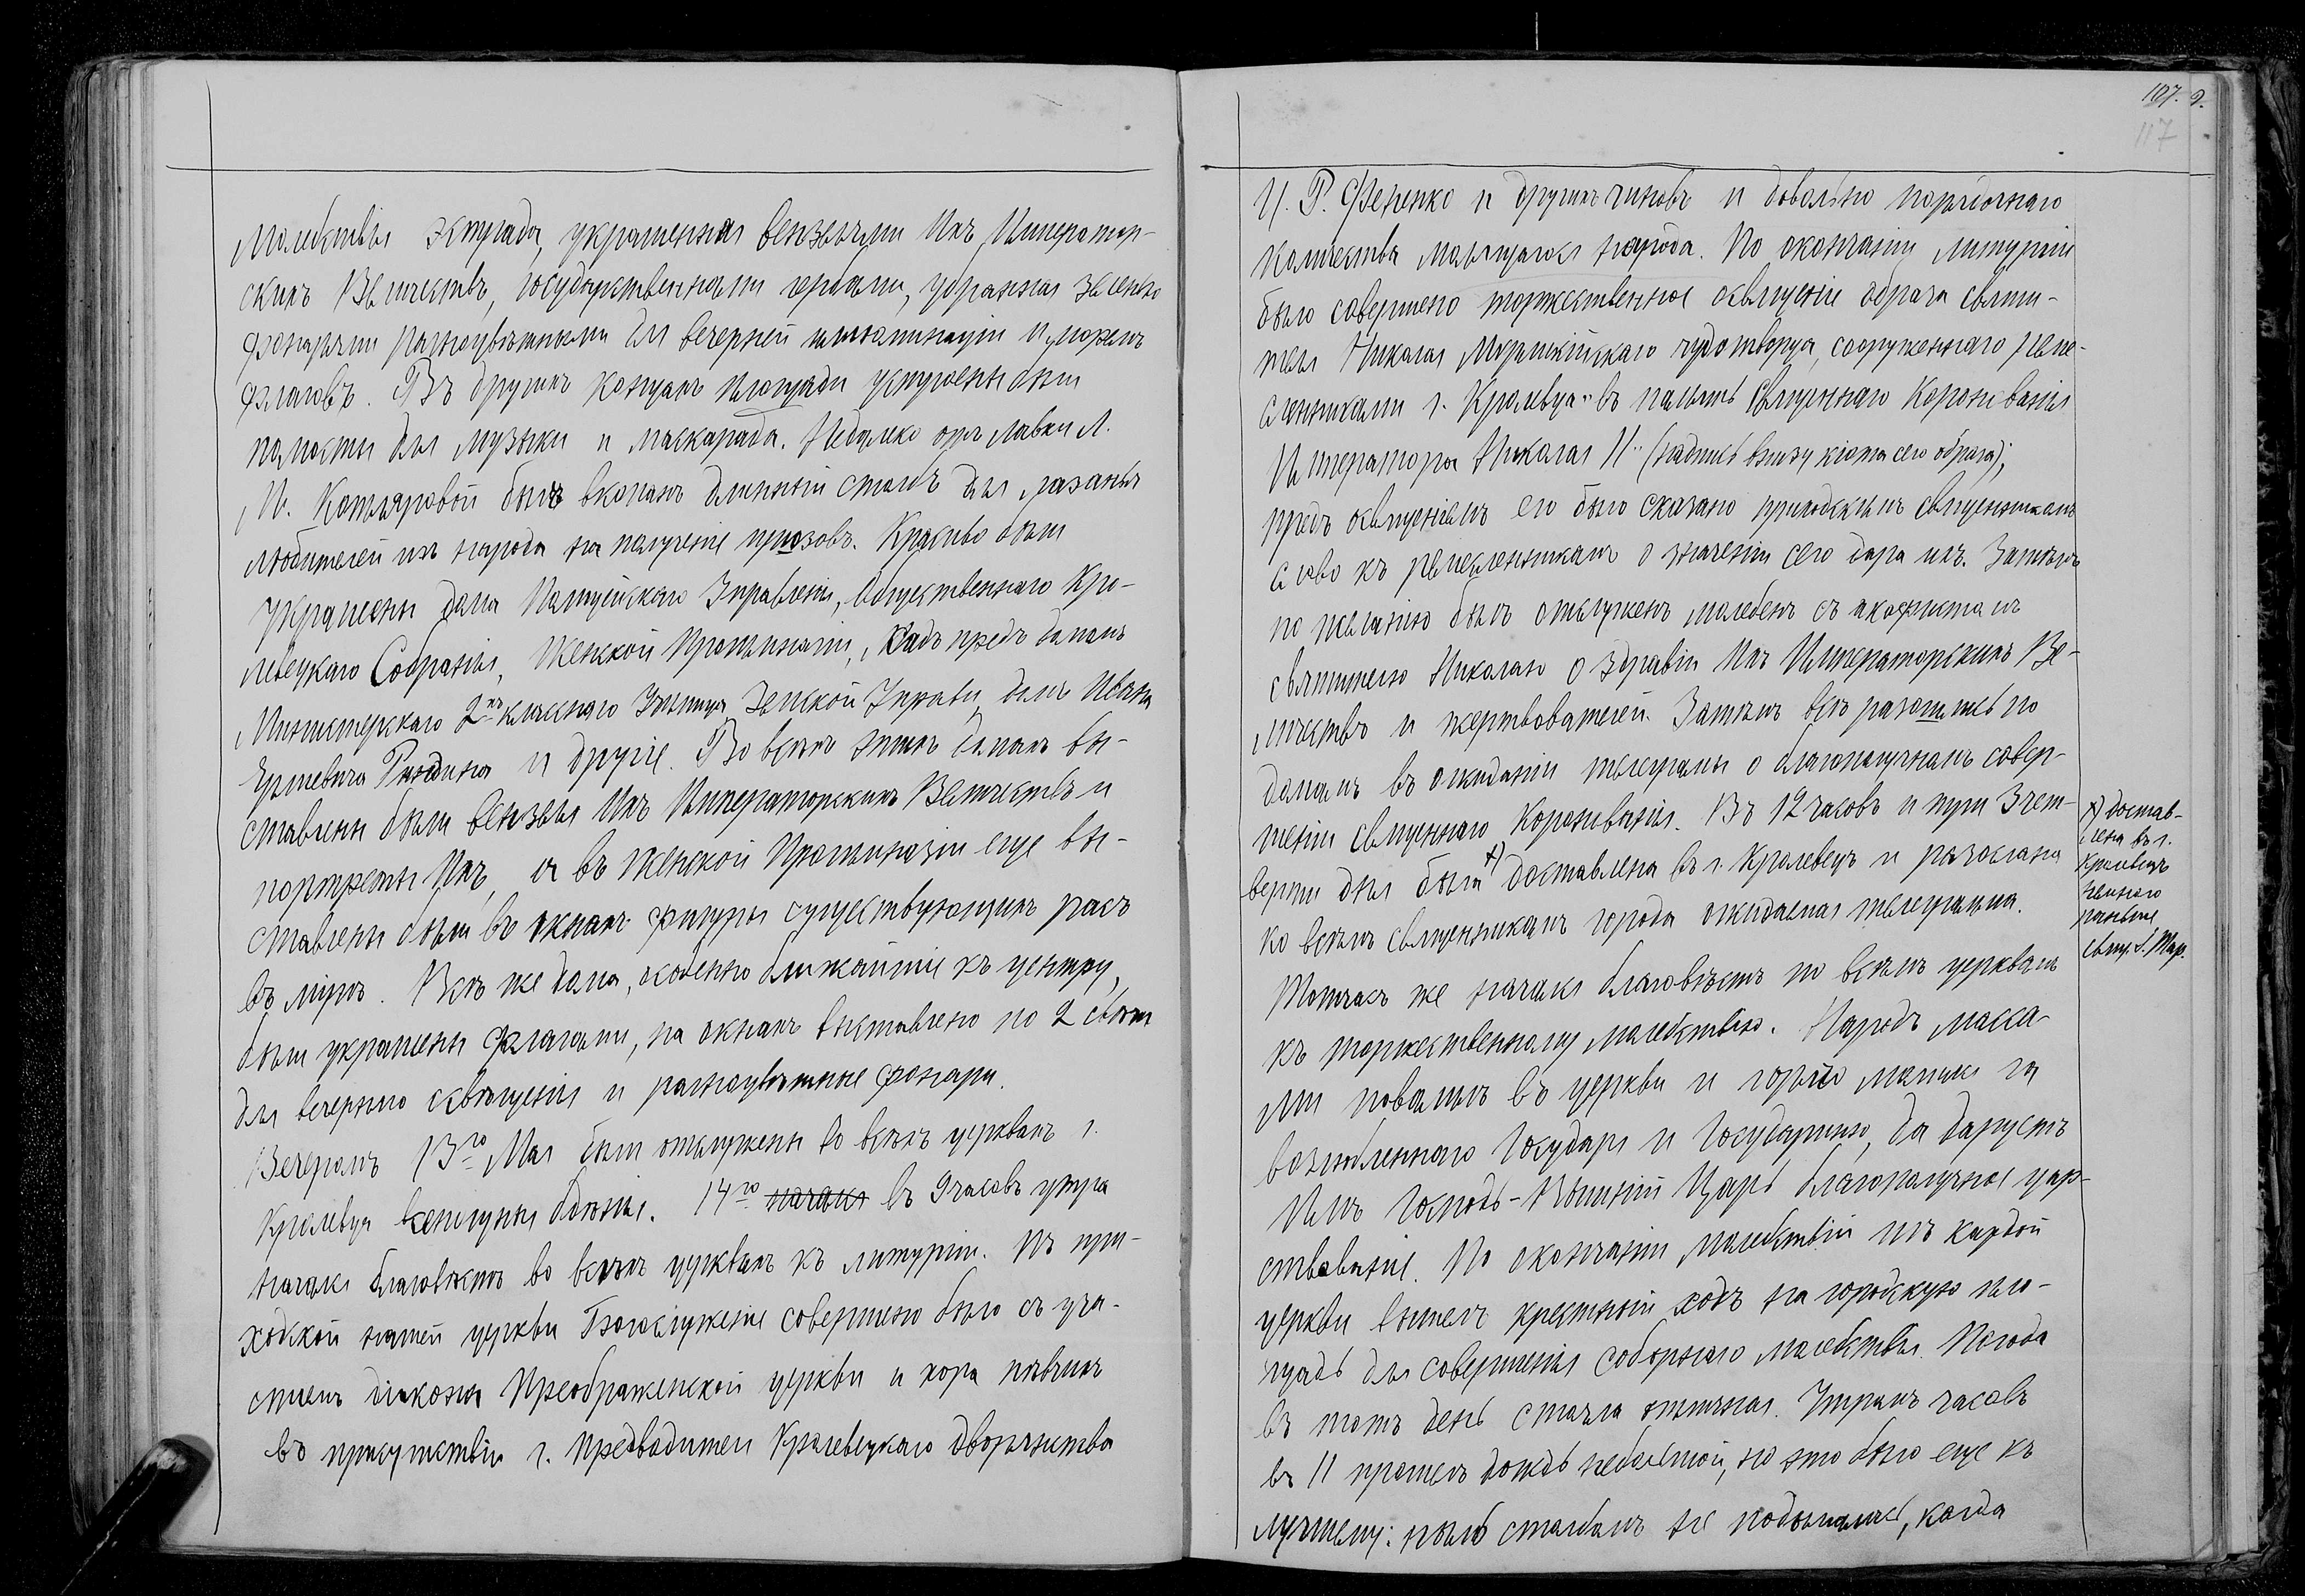 Молебствія эстрада, украшенная вензелями Ихъ Император-
скихъ Величествъ, государственными гербами, убранная зеленью
фонарями разноцвѣтными для вечерней иллюминаціи и моремъ
флаговъ. Въ другихъ концахъ площади устроены были
помосты для музыки и маскарада. Недалеко отъ лавки Л.
И. Котляровой былъ вкопанъ длинный столбъ для лазанья
любителей изъ народа на полученіе призовъ. Красиво были
украшены дома Полицейскаго Управленія, Общественнаго Кро-
левецкаго Собранія, Женской Прогимназіи, садъ предъ домомъ
Министерскаго 2хъ класснаго Училища Земской Управы, домъ Ивана
Юрьевича Риндина и другіе. Во всѣхъ этихъ домахъ вы-
ставлены были вензеля Ихъ Императорскихъ Величествъ и
портреты Ихъ, а въ Женской Прогимназіи еще вы-
ставлены были въ окнахъ фигуры существующихъ расъ
въ мірѣ. Всѣ же дома, особенно ближайшіе къ центру,
были украшены флагами, на окнахъ выставлено по 2 свѣчи
для вечерняго освѣщенія и разноцвѣтные фонари.
Вечеромъ 13го Мая были отслужены во всѣхъ церквахъ г.
Кролевца всенощныя бдѣнія. 14го начался въ 9 часовъ утра
начался благовѣстъ во всѣхъ церквахъ къ литургіи. Въ при-
ходской нашей церкви Богослуженіе совершено было съ уча-
стіемъ діакона Преображенской церкви и хора пѣвчихъ
въ присутствіи г. Предводителя Кролевецкаго дворянства
107. 9.
117
И. Р. Фененко и другихъ чиновъ и довольно порядочнаго
количества молящагося народа. По окончаніи литургіи
было совершено торжественное освященіе образа святи-
теля Николая Мѵрликійскаго чудотворца, сооруженнаго реме-
сленниками г. Кролевца „въ память Священнаго Коронованія
Императора Николая II" (надпись внизу кіота сего образа);
предъ освященіемъ его было сказано приходскимъ священникомъ
слово къ ремесленникамъ о значеніи сего дара ихъ. Затѣмъ
по желанію былъ отслуженъ молебенъ съ акафистомъ
святителю Николаю о здравіи Ихъ Императорскихъ Ве-
личествъ и жертвователей. Затѣмъ всѣ разошлись по
домамъ въ ожиданіи телеграммы о благополучномъ совер-
шеніи священнаго Коронованія. Въ 12 часовъ и три чет-
верти дня была х) доставлена въ г. Кролевецъ и разослана
ко всѣмъ священникамъ города ожидаемая телеграмма.
х) достав-
лена въ г.
Кролевецъ
немного
раньше
свящ. І. Тар.
Тотчасъ же начался благовѣстъ по всѣмъ церквамъ
къ торжественному молебствію. Народъ масса-
ми повалилъ въ церкви и горячо молился за
возлюбленнаго Государя и Государыню, да даруетъ
Имъ Господь-Вышній Царь благополучное цар-
ствованіе. По окончаніи молебствій изъ каждой
церкви вышелъ крестный ходъ на городскую пло-
щадь для совершенія соборнаго молебствія. Погода
въ тотъ день стояла отличная. Утромъ часовъ
въ 11 прошелъ дождь небольшой, но это было еще къ
лучшему: пыль столбомъ не подымалась, когда